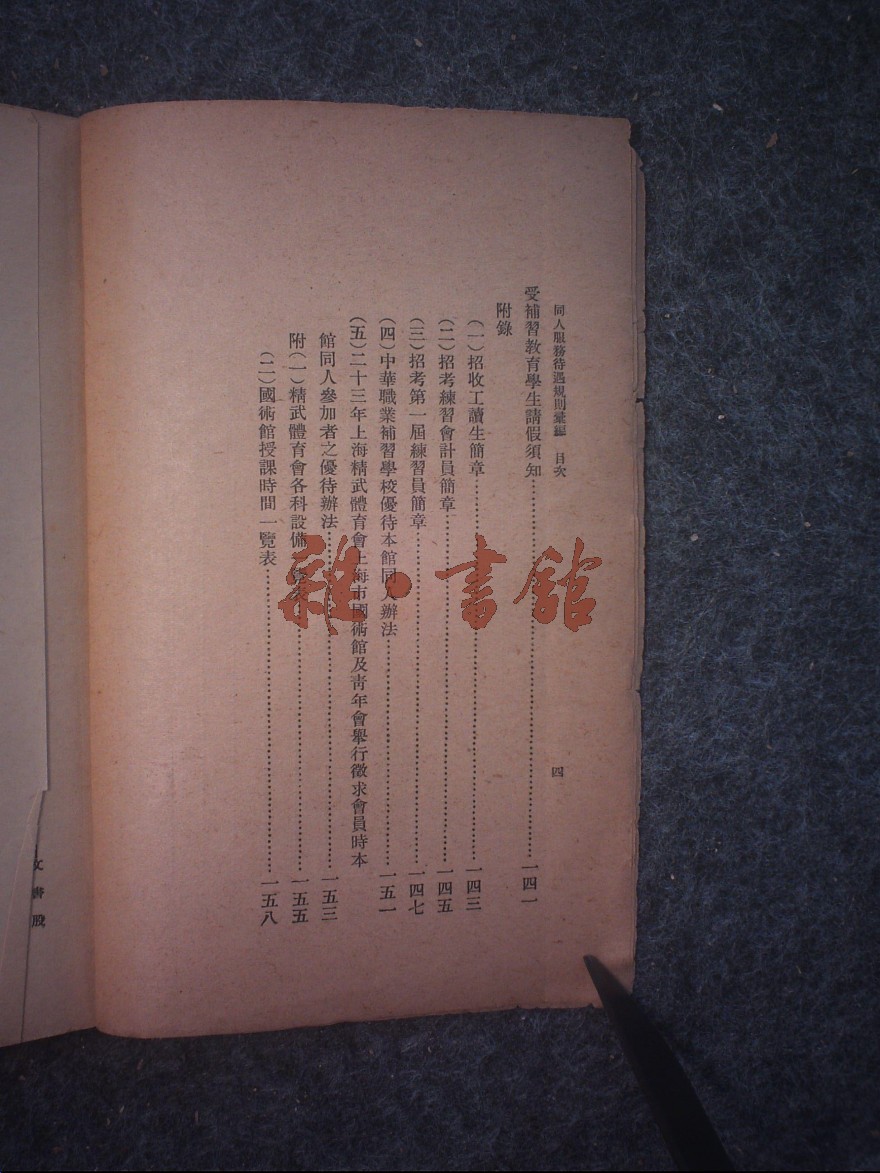 同人服務待遇規則彙編　目次　四
受補習教育學生請假須知……一四一
附錄
（一）招收工讀生簡章……一四三
（二）招考練習會計員簡章……一四五
（三）招考第一屆練習員簡章……一四七
（四）中華職業補習學校優待本館同人辦法……一五一
（五）二十三年上海精武體育會上海市國術館及靑年會舉行徵求會員時本
館同人參加者之優待辦法……一五三
附（一）精武體育會各科設備一覽表……一五五
（二）國術館授課時間一覽表……一五八
文書股
雜·書館